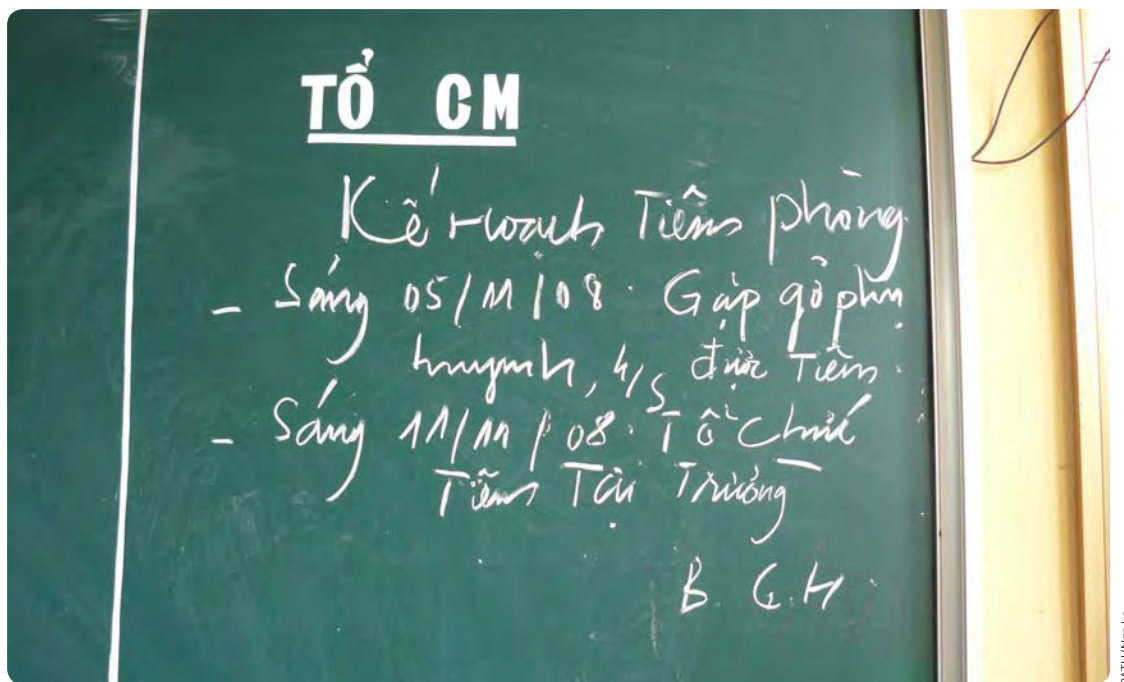 TỔ CM
Kế hoạch Tiêm phòng.
- Sáng 05/11/08. Gặp gỡ phụ
huynh, h/s được Tiêm.
- Sáng 11/11/08. Tổ chức
Tiêm Tại Trường
B. G. H.